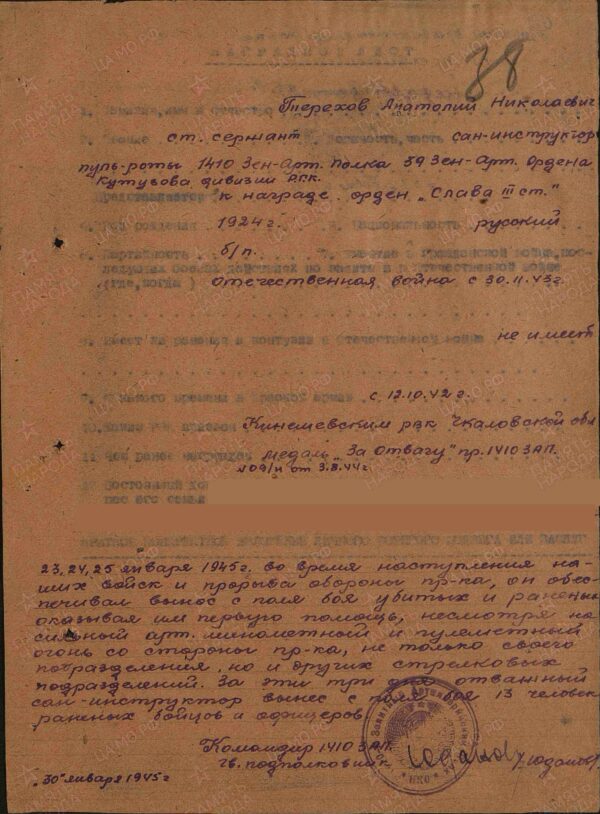 НАГРАДНОЙ ЛИСТ
38
1. Фамилия, имя и отчество Терехов Анатолий Николаевич
2. Звание ст. сержант 3. Должность, часть сан-инструктор
пуль-роты 1410 Зен-Арт. Полка 59 Зен-Арт. Ордена
Кутузова дивизии РГК.
Представляется к награде орден „Слава III ст."
4. Год рождения 1924 г. 5. Национальность русский
6. Партийность б/п.
(где, когда) отечественная война с 30.11.43 г.
8. Имеет ли ранения и контузии в отечественной войне не имеет
9. С какого времени в Красной армии с 12.10.42 г.
10. Каким РВК призван рвк Чкаловской обл
11. Чем ранее награжден медаль „За отвагу" пр. 1410 ЗАП.
№ 09/н от 3.8.44 г
23, 24, 25 января 1945 г. во время наступления на-
ших войск и прорыва обороны пр-ка, он обес-
печивал вынос с поля боя убитых и раненых
оказывая им первую помощь, несмотря на
сильный арт. минометный и пулеметный
огонь со стороны пр-ка, не только своего
подразделения, но и других стрелковых
подразделений. За эти три дня отважный
сан-инструктор вынес с поля боя 13 человек
раненых бойцов и офицеров.
Командир 1410 ЗАП
гв. подполковник /Юданов/
„30" января 1945 г